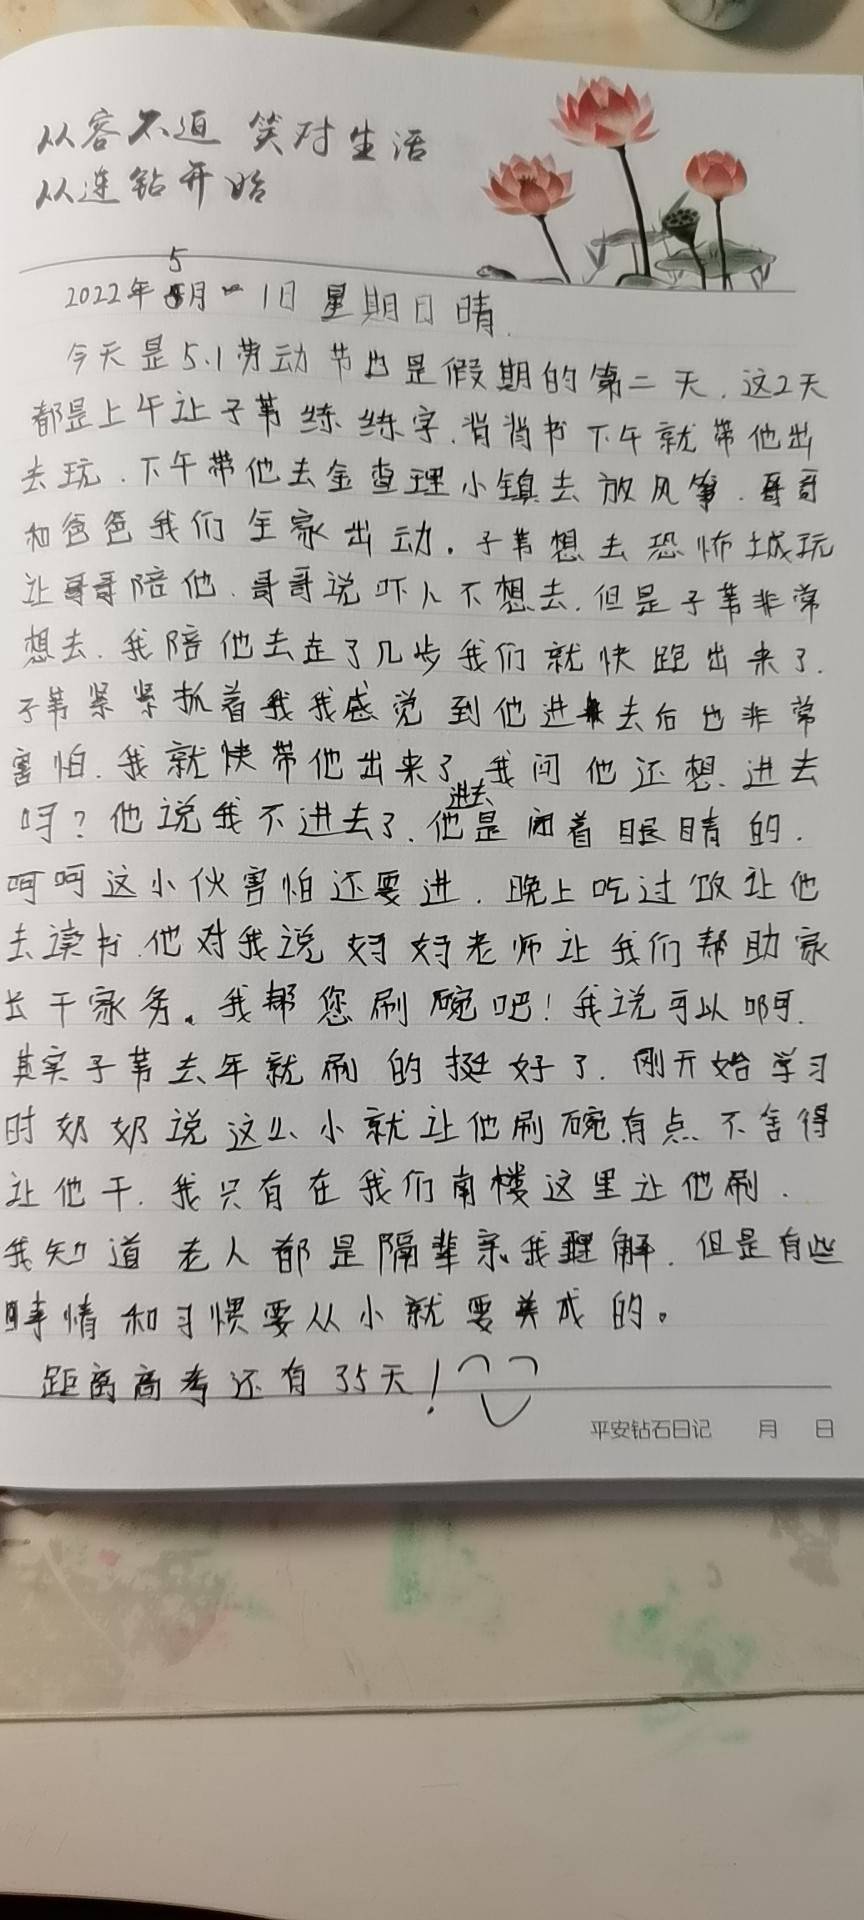 从容不迫 笑对生活
从连钻开始
2022年5月1日 星期日 晴.
今天是5.1劳动节也是假期的第二天.这2天
都是上午让子苇练练字.背背书下午就带他出
去玩.下午带他去金查理小镇去放风筝.哥哥
和爸爸我们全家出动。子苇想去恐怖城玩
让哥哥陪他.哥哥说吓人不想去.但是子苇非常
想去.我陪他去走了几步我们就快跑出来了.
子苇紧紧抓着我我感觉到他进去后也非常
害怕.我就快带他出来了.我问他还想进去
吗?他说我不进去了.他进去是闭着眼睛的.
呵呵这小伙害怕还要进.晚上吃过饭让他
去读书.他对我说妈妈老师让我们帮助家
长干家务。我帮您刷碗吧!我说可以啊.
其实子苇去年就刷的挺好了.刚开始学习
时奶奶说这么小就让他刷碗有点不舍得
让他干.我只有在我们南楼这里让他刷.
我知道老人都是隔辈亲我理解.但是有些
事情和习惯要从小就要养成的。
距离高考还有35天!
平安钻石日记 月 日